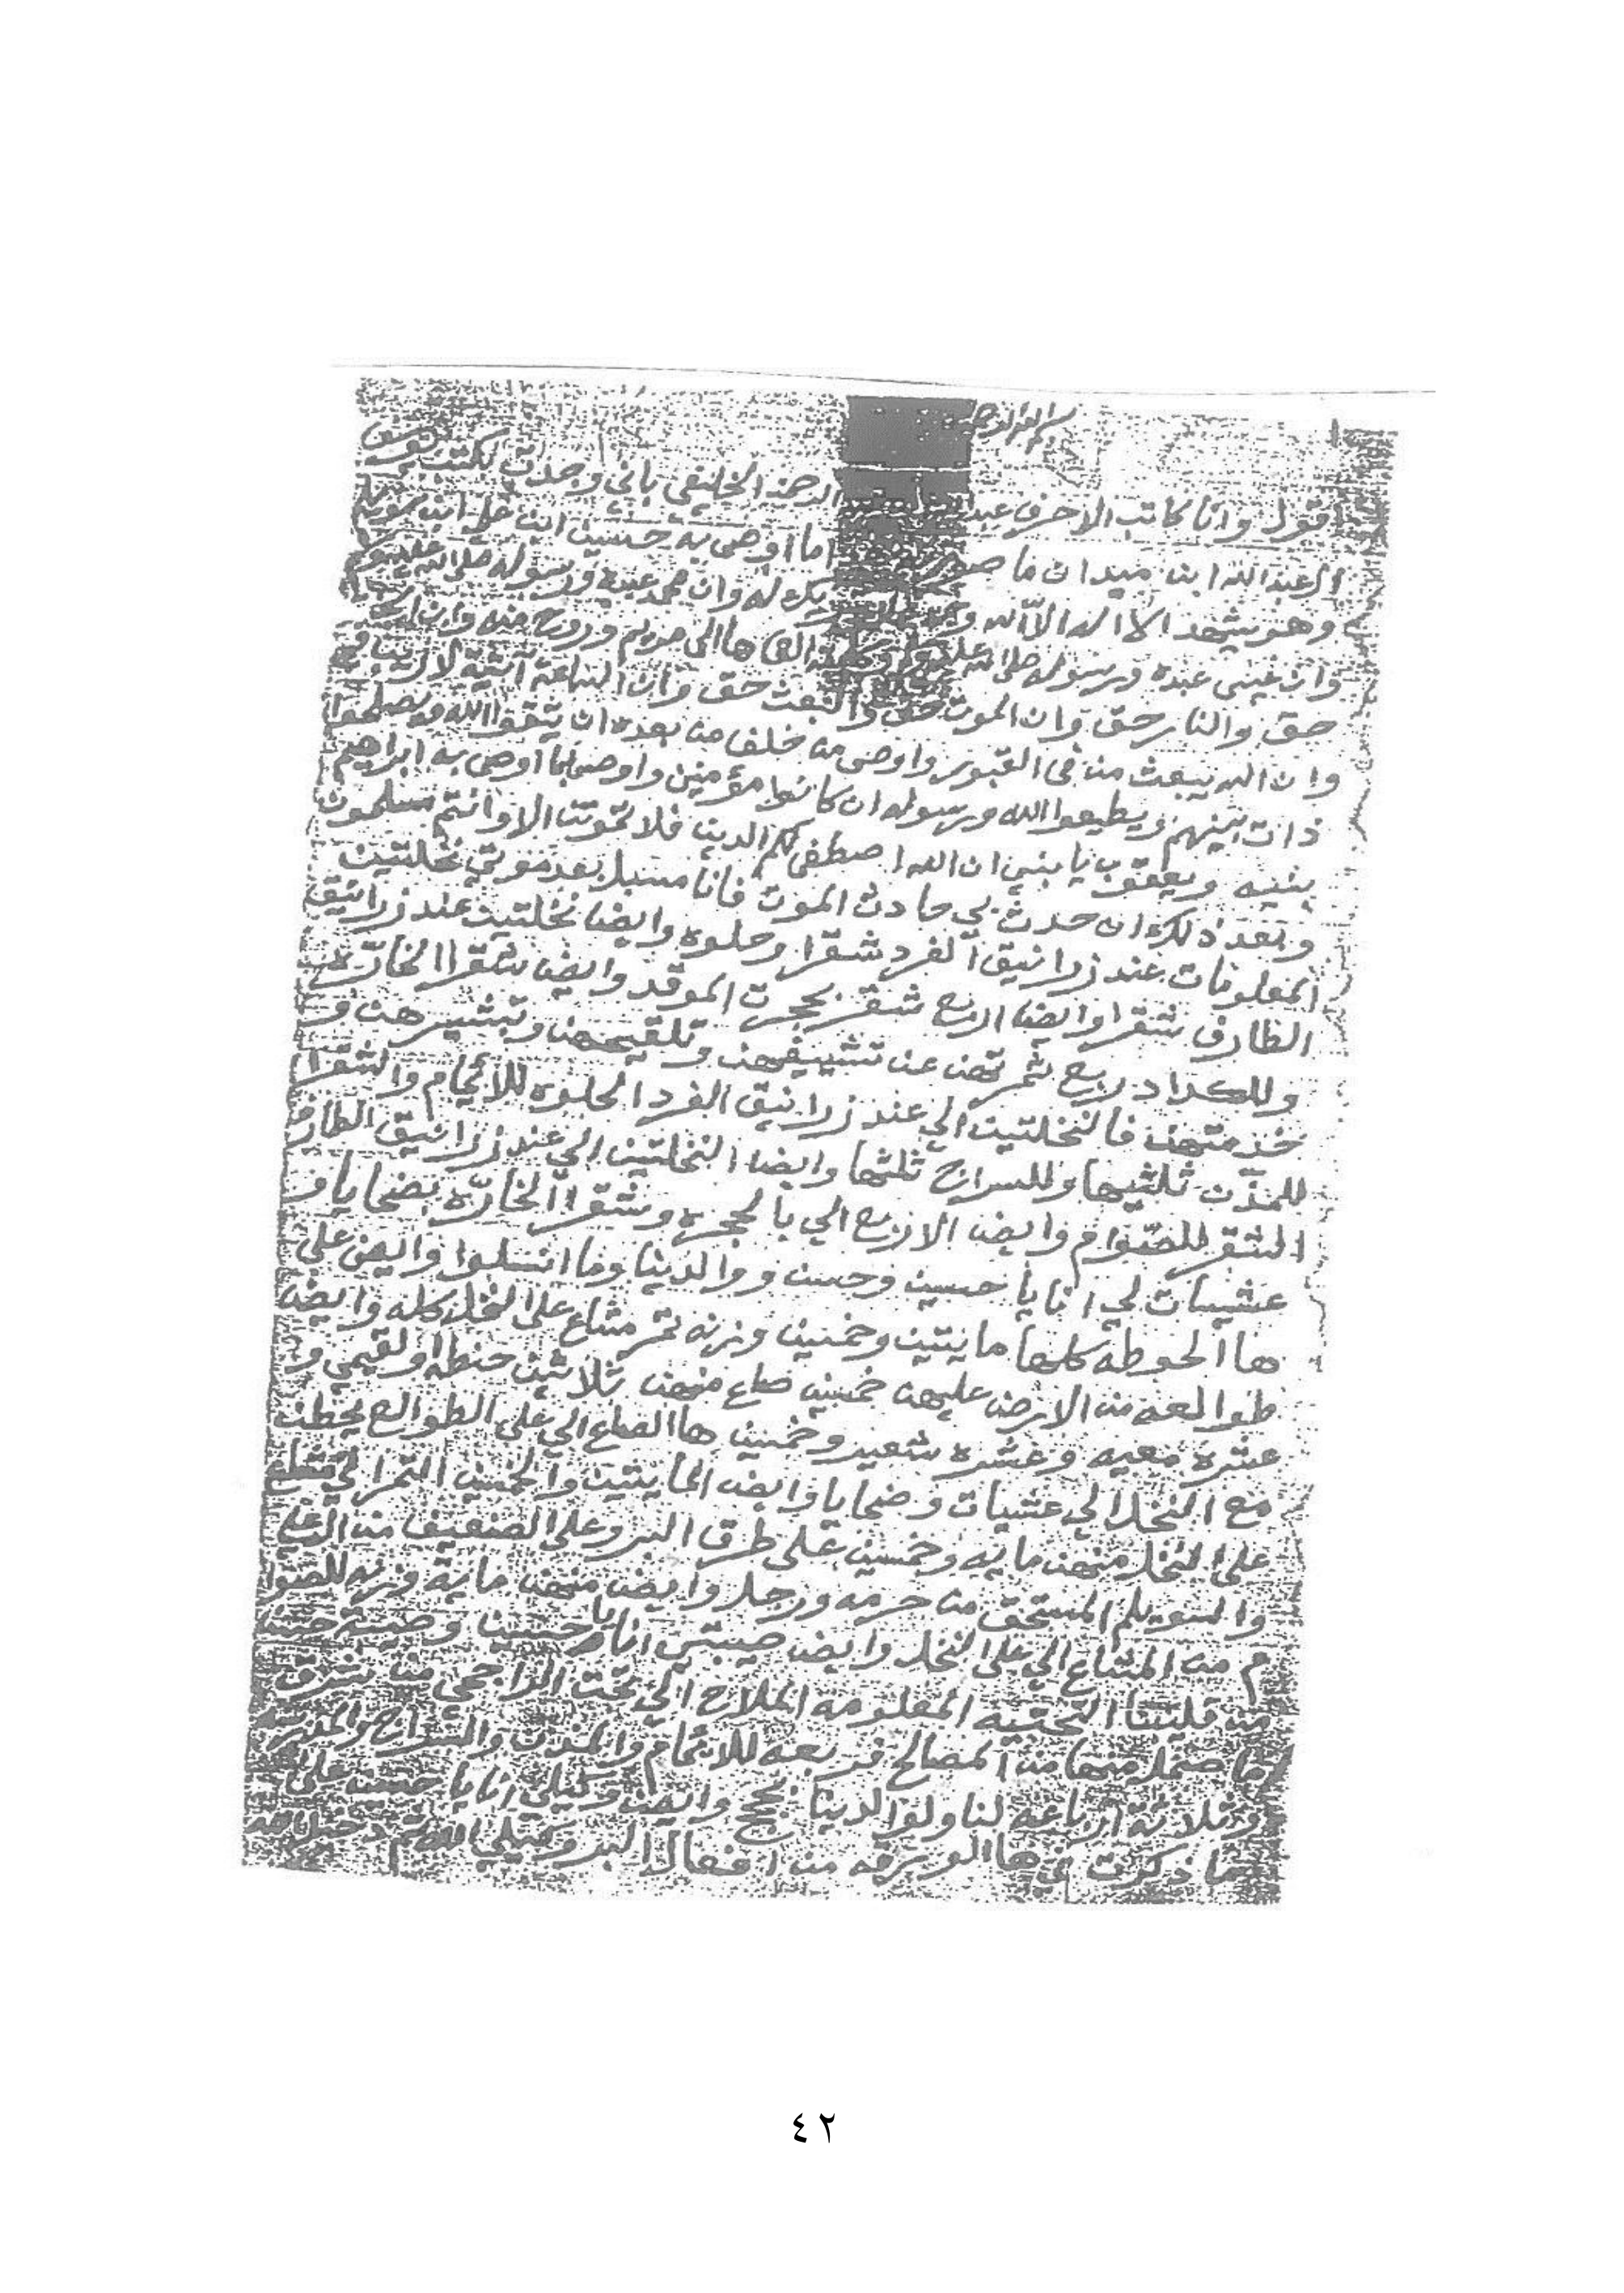 بسم الله الرحمن
اقول وانا كاتب الاحرف عبد الرحمن الخليفي باني وجدت بكتب
العبدالله ابن ميدان ما صورته اما اوصى به حسين ابن علي ابن
وهو يشهد الا اله الا الله له وان محمد عبده ورسوله صلى الله عليه وسلم
وان عيسى عبده ورسوله صلى الله عليه وسلم وكلمته القى ها الى مريم وروح منه وان الجنة
حق والنار حق وان الموت حق والبعث حق وان الساعة آتية لا ريب في
وان الله يبعث من في القبور واوصى من خلف من بعده ان يتقوا الله ويصلحوا
ذات بينهم ويطيعوا الله ورسوله ان كانوا مؤمنين واوصى بما اوصى به ابراهيم
بنيه ويعقوب يا بني ان الله اصطفى لكم الدين فلا تموتن الا وانتم مسلمون
وبعد ذلك ان حدث بي حادث الموت فانا مسبل بعد موتي نخلتين
المعلومات عند زرانيق الفرد شقرا وحلوه وايضا نخلتين عند زرانيق
الطارف شقرا وايضا اربع شقر بحجرت الموقد وايضا شقرا الخارّه
وللكداد ربع ثمرتهن عن تشييفهن وتلقيحهن وتبشيرهن و
خدمتهن فالنخلتين الي عند زرانيق الفرد الحلوه للائمام والشقرا
للمذّن ثلثيها وللسراج ثلثها وايضا النخلتين الي عند زرانيق الطارف
الشقر للصوّام وايضا الاربع الي بالحجره وشقرا الخارّه بضحايا و
عشيات لي انايا حسين وحسن ووالدينا وما انسلوا وايضن على
ها الحوطه كلها مايتين وخمسين وزنه تمر مشاع على النخل كله وايضا
طوالعه من الارض عليهن خمسين صاع منهن ثلاثين حنطه او لقيمي و
عشره معيه وعشره شعير وخمسين ها الصاع الي على الطوالع يحطن
مع النخل الي عشيات وضحايا وايضا المايتين والخمسين التمر الي مشاع
على النخل منهن مايه وخمسين على طرق البر وعلى الضعيف من
والسويلم المستحق من حرمه ورجل وايضن منهن مايه وزنه للصوا
م من المشاع الي على النخل وايضن صيبتي انايا حسين وصيبة حسن
من قليبنا التحتيه المعلومه الملاح الي تحت الراجحي من شرق
ما حصل منها من المصالح فربعه للائمام والمذن والسراج والمدرسه
وثلاثة ارباعه لنا ولوالدينا بحجج وايضن وكيلي انايا حسين على
ما ذكرت في ها الورقه من افعال البر وكيلي الله ثم
٤٢